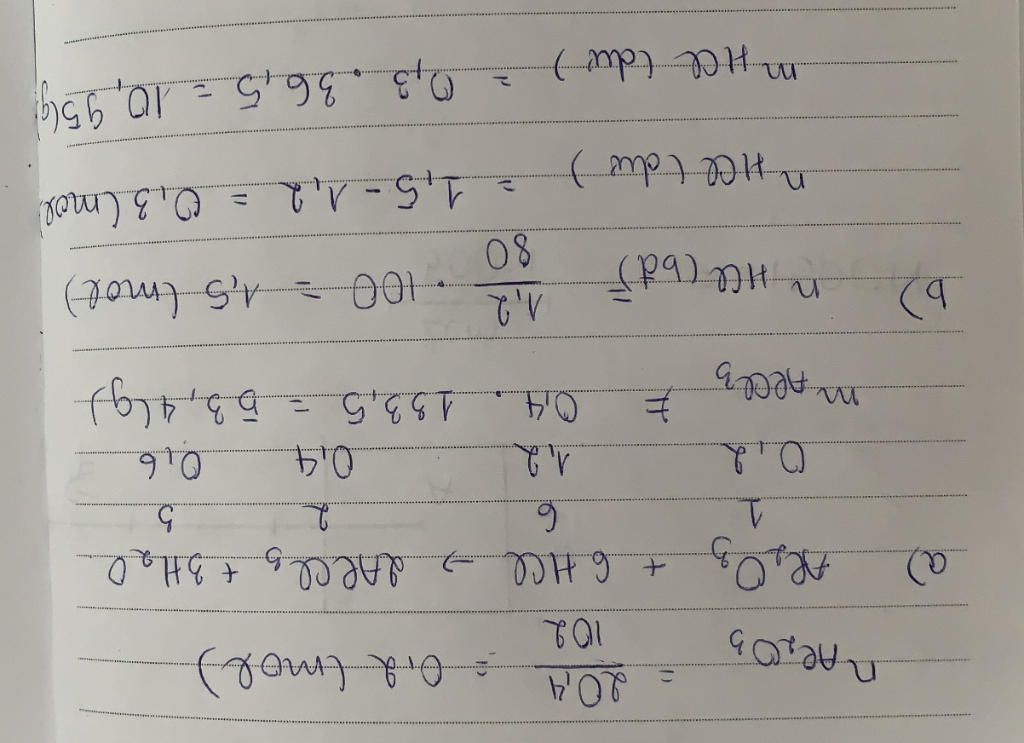 nAl₂O₃ = 20,4/102 = 0,2 (mol)
a) Al₂O₃ + 6HCl → 2AlCl₃ + 3H₂O
1 6 2 3
0,2 1,2 0,4 0,6
mAlCl₃ = 0,4 . 133,5 = 53,4 (g)
b) nHCl (bd) = 1,2/80 . 100 = 1,5 (mol)
nHCl (dư) = 1,5 - 1,2 = 0,3 (mol)
mHCl (dư) = 0,3 . 36,5 = 10,95 (g)